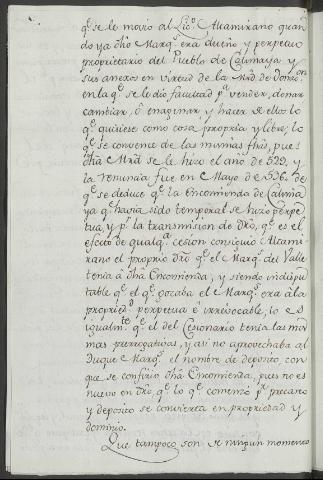 q.e se le movio al Lic.do Altamirano quan
do ya dho Marq.s era dueño y perpetuo
proprietario del Pueblo de Calimaya y
sus anexos en virtud de la Mrd de donac.on
en la q.e se le dio facultad p.a vender, donar
cambiar, ò enagenar, y hacer de ellos lo
q.e quisiese como cosa propria y libre, lo
q.e se convence de las mismas fhas, pues
dha Mrd se le hizo el año de 529, y
la renuncia fue en Mayo de 536, de
q.e se deduce q.e la encomienda de Calima
ya q.e havia sido temporal se hizo perpe
tua, y p.r la transmision de dro, q.e es el
efecto de qualq.a cesion consiguió Altami
rano el proprio dro q.e el Marq.s del Valle
tenia à dha Encomienda, y siendo indispu
table q.e el q.e gozaba el Marq.s era à la
propried.d perpetua è irrevocable, lo es
igualm.te q.e el del Cesionario tenia las mis
mas prerrogativas, y asi no aprovechaba al
Duque Marq.s el nombre de deposito, con
que se confirió dha Encomienda, pues no es
nuevo en dro, q.e lo q.e comenzó p.r precario
y deposito se convierta en propriedad y
dominio.
Que tampoco son de ningun momento